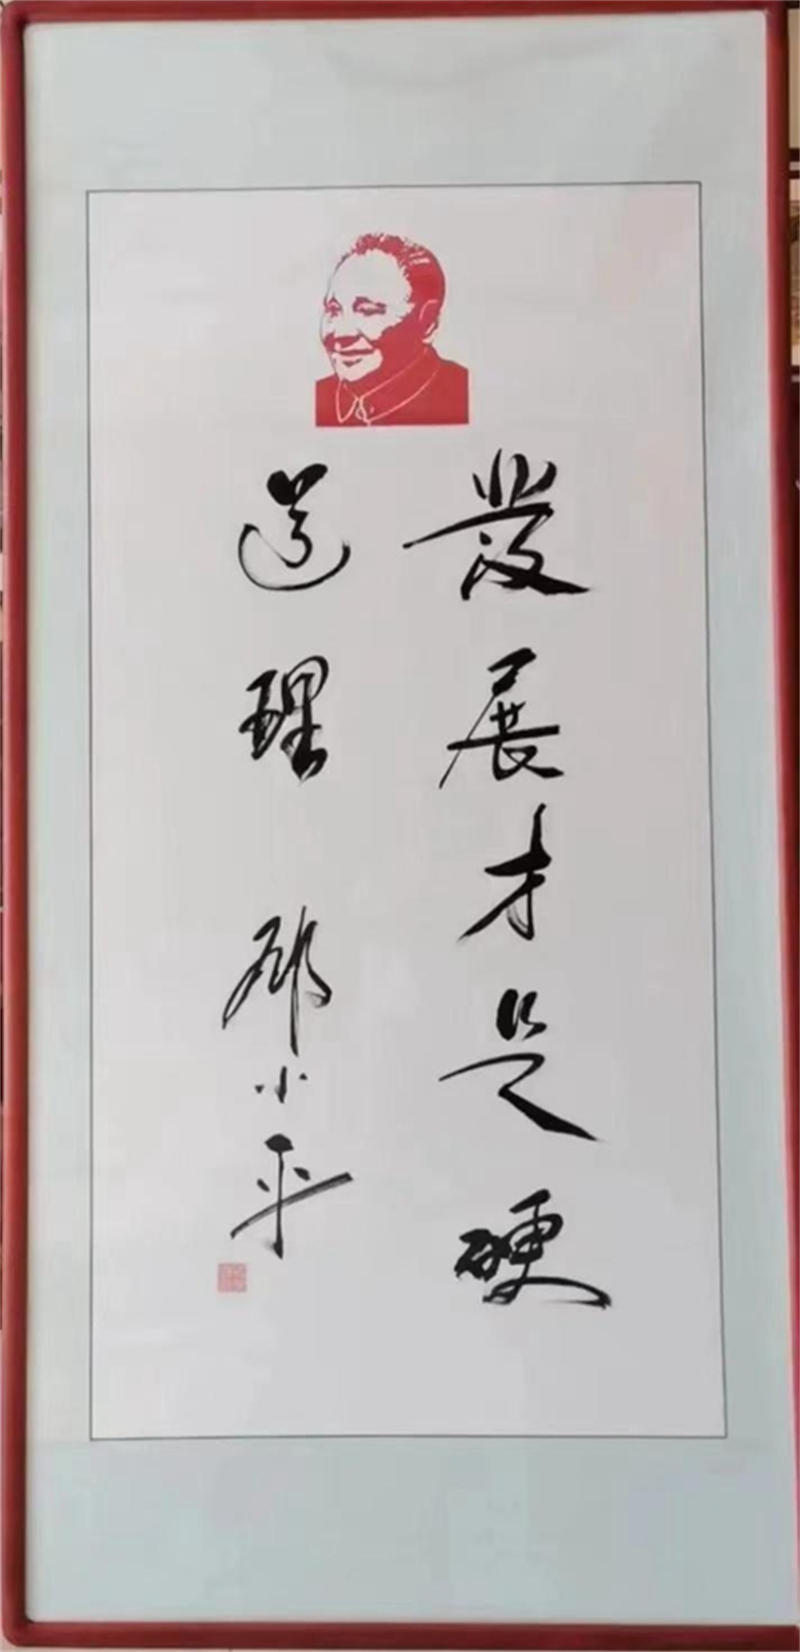 发展才是硬
道理 邓小平